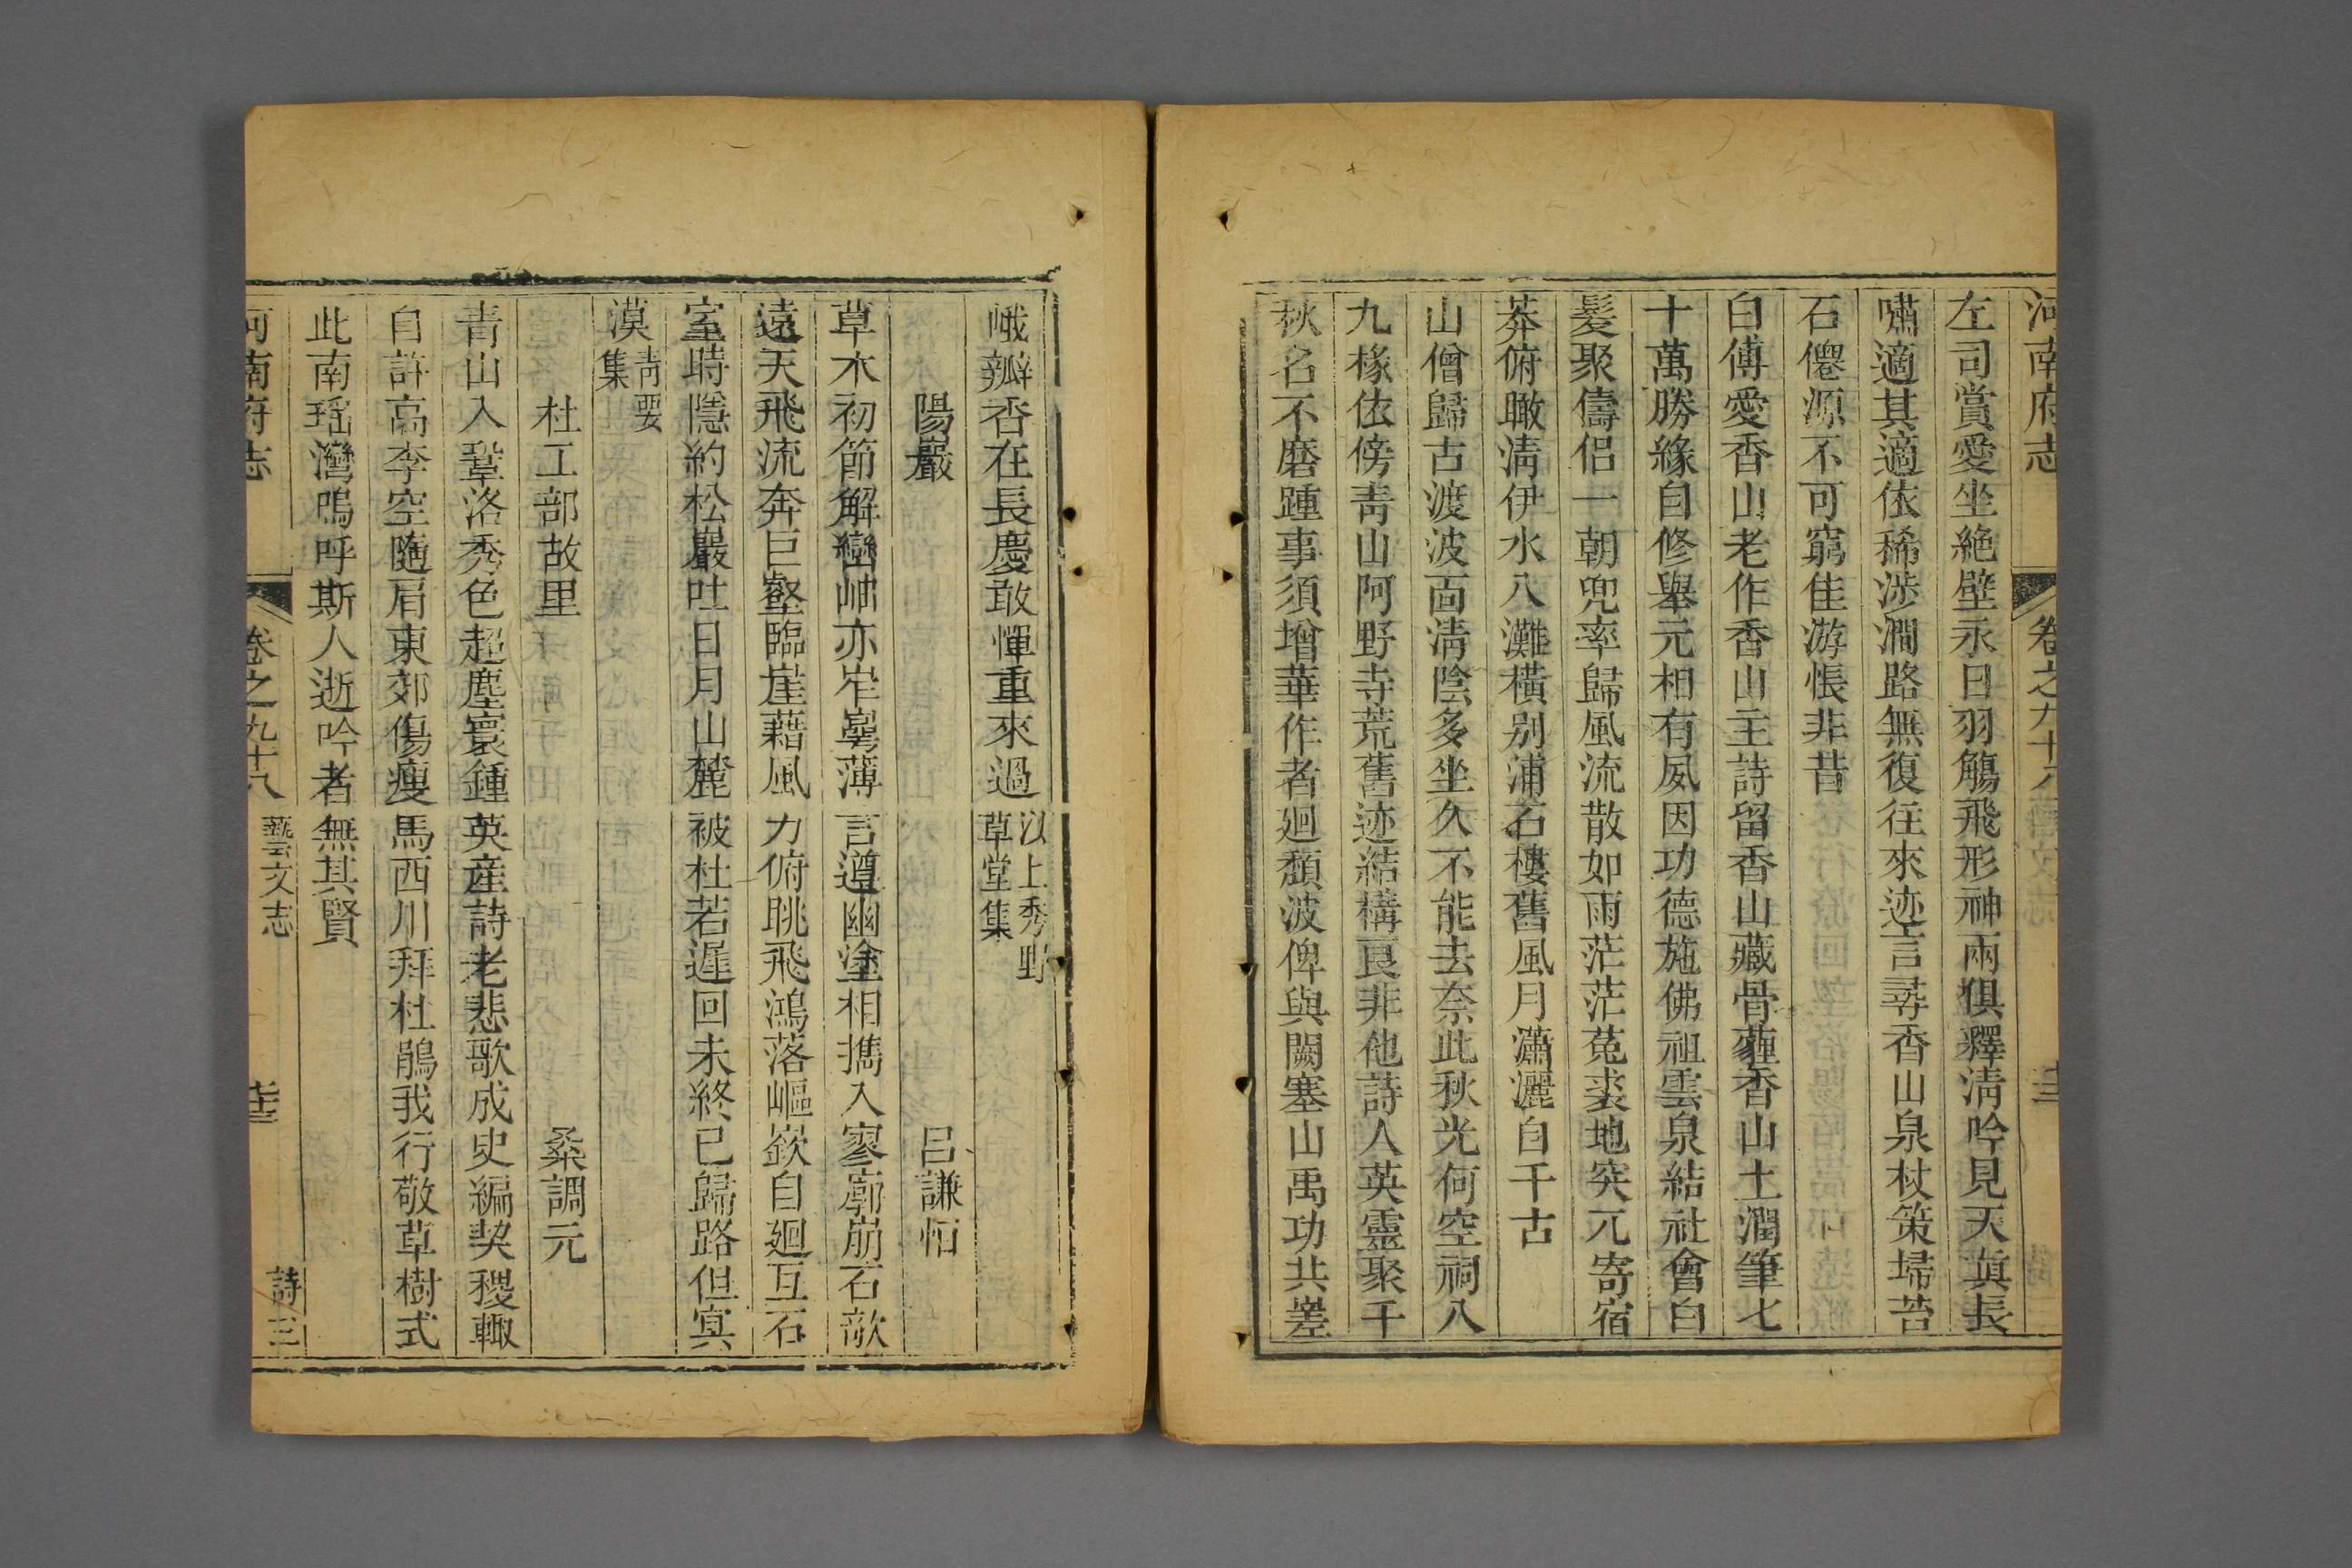 河南府志 卷之九十八
左司賞愛坐絶壁永日羽觴飛形神兩俱釋淸吟見天眞長
嘯適其適依稀涉澗路無復往來迹言尋香山泉杖策埽苔
石僊源不可窮佳游悵非昔
白傅愛香山老作香山主詩留香山藏骨薶香山土潤筆七
十萬勝緣自修舉元相有夙因功德施佛祖雲泉結社會白
髮聚儔侣一朝兜率歸風流散如雨茫茫菟裘地突兀寄宿
莽俯瞰淸伊水八灘橫别浦石樓舊風月瀟灑自千古
山僧歸古渡波面淸陰多坐久不能去奈此秋光何空祠八
九椽依傍靑山阿野寺荒舊迹結構良非他詩人英靈聚千
秋名不磨踵事須增華作者廻頽波俾與闕塞山禹功共嵳
峨瓣香在長慶敢憚重來過 以上秀野草堂集
陽巖 呂謙恒
草木初節解巒岫亦岸嶌薄言遵幽塗相攜入寥廓崩石敧
遠天飛流奔巨壑臨崖藉風力俯眺飛鴻落嶇嶔自廻互石
室時隱約松巖吐日月山麓被杜若遲回未終已歸路但冥
漠 靑要集
杜工部故里 桑調元
青山入鞏洛秀色超塵寰鍾英産詩老悲歌成史編契稷輙
自許高李空隨肩東郊傷瘦馬西川拜杜鵑我行敬草樹式
此南瑶灣嗚呼斯人逝吟者無其賢
河南府志 卷之九十八 藝文志 詩三